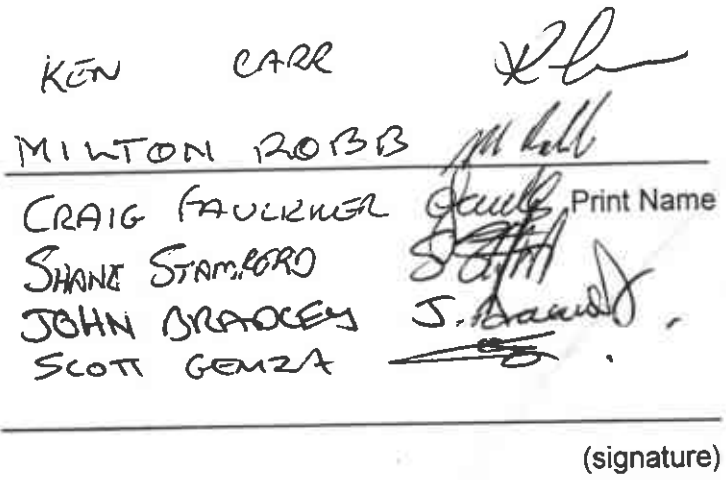 KEN CARR
MILTON ROBB
CRAIG FAULKNER Print Name
SHANE STAMFORD
JOHN BRADLEY J.
SCOTT GEMZA
(signature)